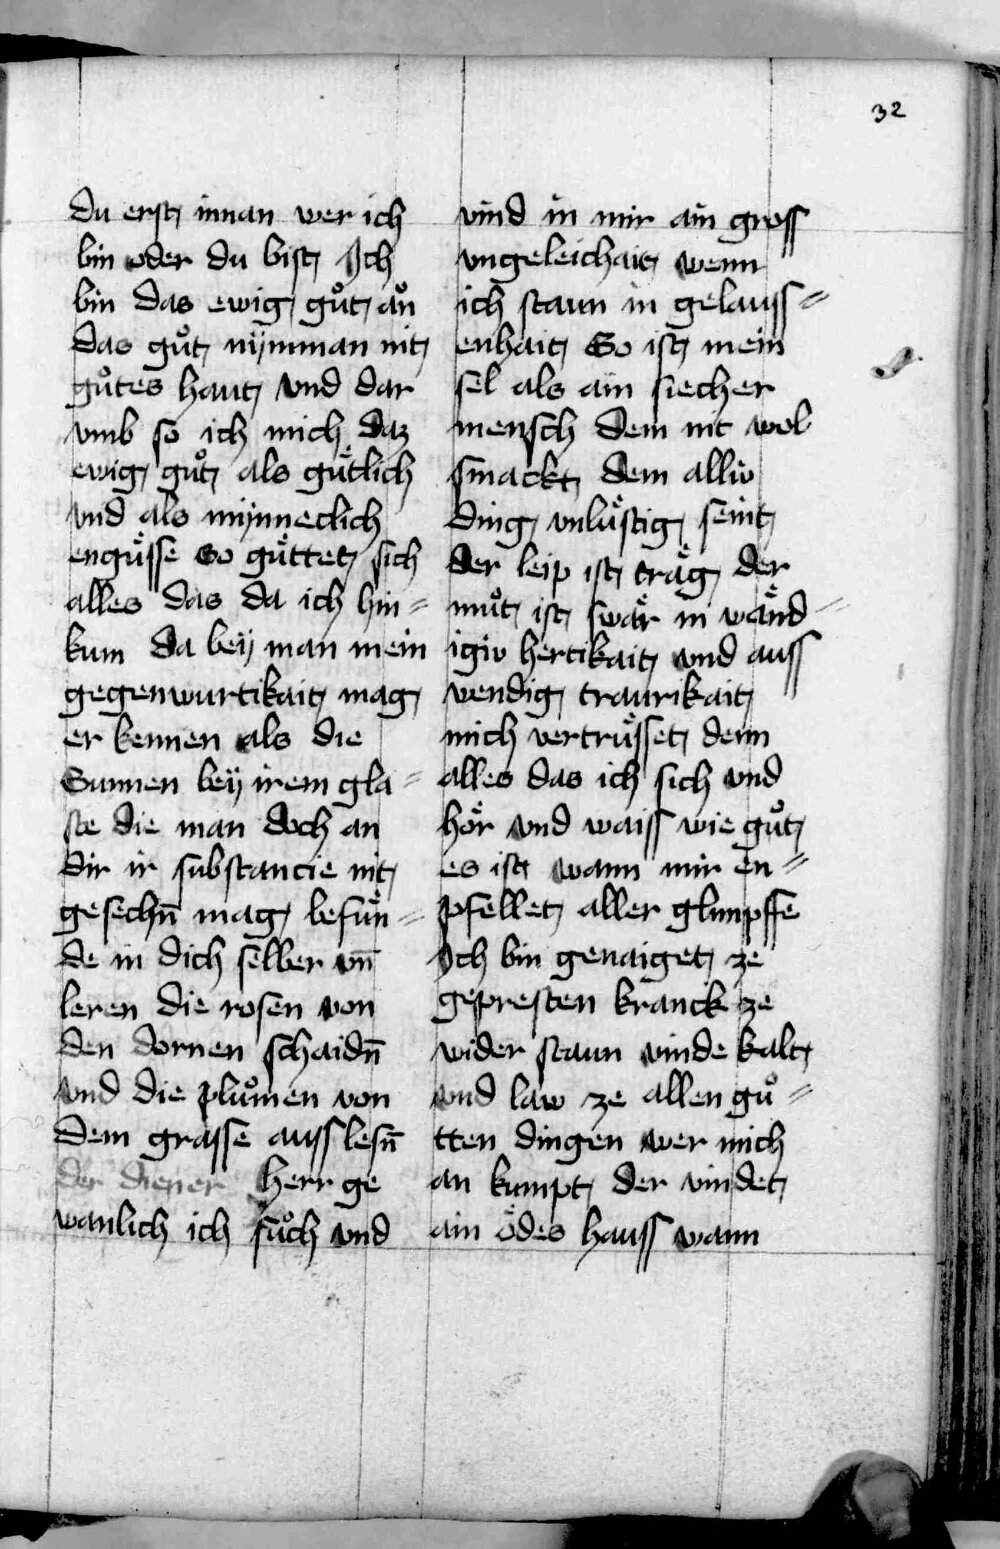 32
du erst innan wer ich
bin oder du bist Ich
bin das ewig guͦt aͤn
das guͦt nÿmman nit
guͦtes haut vnd dar
vmb so ich mich daz
ewig guͦt als guͤtlich
vnd als mÿnneclich
enguͤsse So guͤttet sich
alles das da ich hin=
kum da beÿ man mein
gegenwurtikait mag
er kennen als die
Sunnen beÿ irem gla=
ste die man doch an
dir ir substancie nit
gesechn̄ mag befuͤn=
de in dich selber vn̄
leren die rosen von
den dornen schaidn̄
vnd die pluͦmen von
dem grasse auss lesn̄
der diener Herr ge
wanlich ich suͦch vnd
vind in mir ain gross
vngeleichait wenn
ich staun in gelauss=
enhait So ist mein
sel als ain siecher
mensch dem nit wol
smackt dem alliv
ding vnluͤstig seint
der leip ist traͤg der
muͦt ist swaͤr in waͤnd=
igiv hertikait vnd auss
wendig traurikait
mich vertruͤsset denn
alles das ich sich vnd
hoͤr vnd waiss wie guͦt
es ist wann mir en=
pfellet aller glimpffe
Ich bin genaiget ze
gepresten kranck ze
wider staun vinde kalt
vnd law ze allen guͦ=
tten dingen wer mich
an kumpt der vindet
ain oͤdes hauss wann